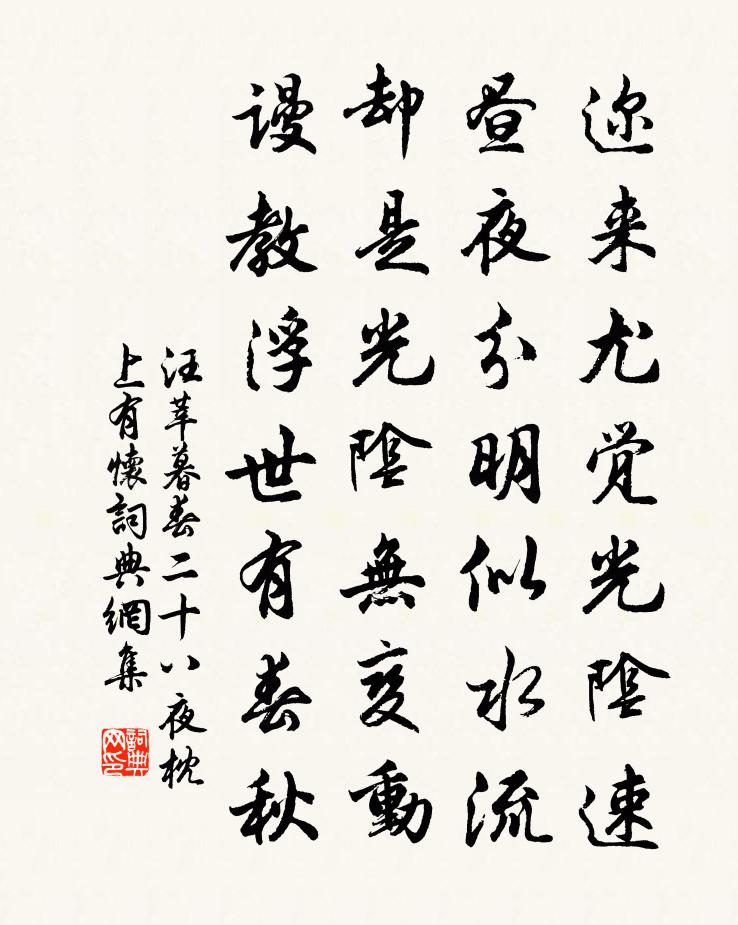 迩来尤觉光陰速
昼夜分明似水流
却是光陰無变動
谩教浮世有春秋
汪莘暮春二十八夜枕
上有懷詞典網集
詞典网印